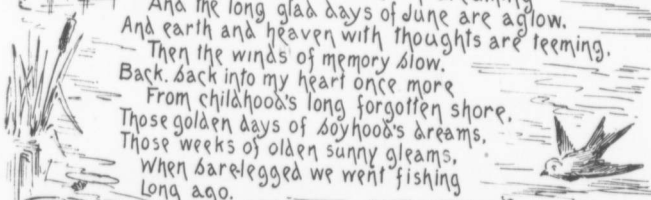 And the long glad days of June are aglow.
And earth and heaven with thoughts are teeming.
Then the winds of memory blow.
Back. back into my heart once more
From childhood's long forgotten shore,
Those golden days of boyhood's dreams,
Those weeks of olden sunny gleams,
When bare-legged we went fishing
Long ago.